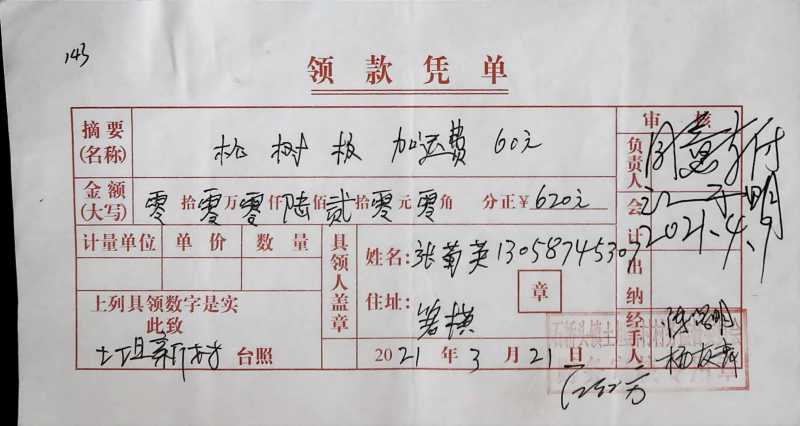 143
领款凭单
摘要(名称) 桃树板 加运费 60元
金额(大写) 零拾零万零仟陆佰贰拾零元零角 分正¥620元
计量单位 单价 数量
上列具领数字是实
此致
新村 台照
具领人盖章
姓名: 张菊英
住址: 箬横
章
2021年3月21日
审核
负责人 同意支付
会计
2021.4.9
出纳
经手人